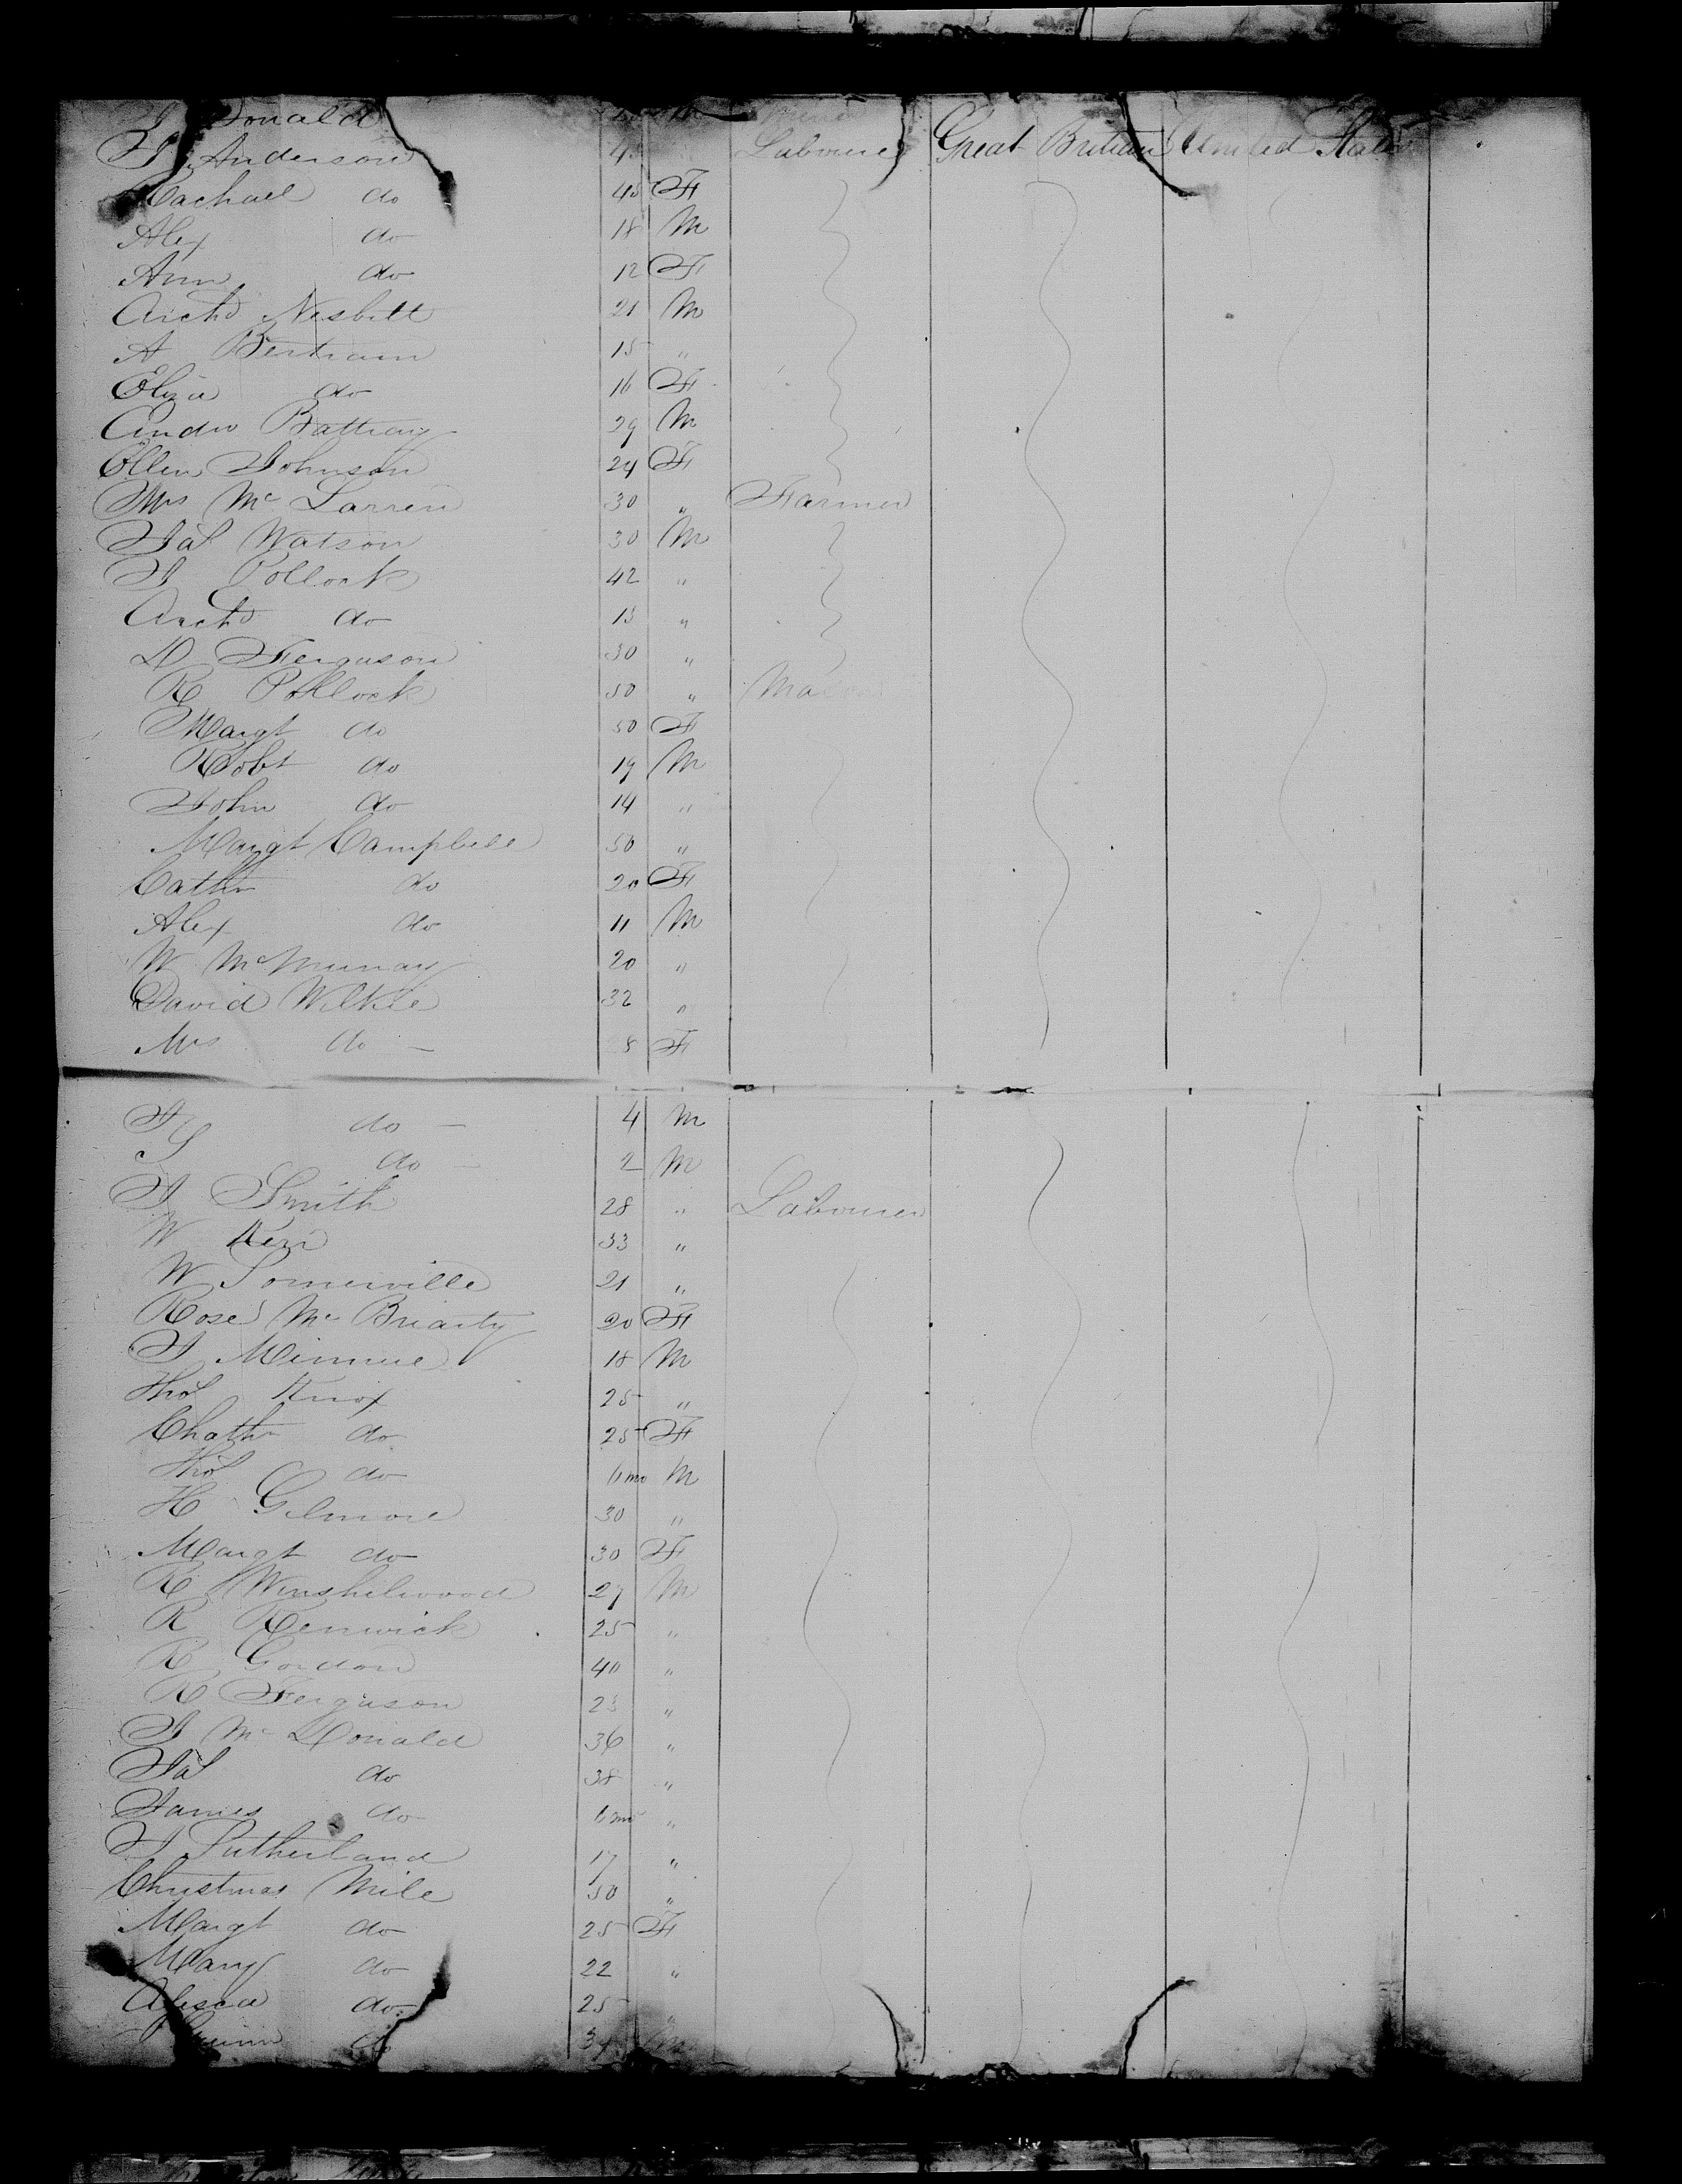 Donald M
J Anderson Labourer Great Britian United States
Rachael do 45 F
Alex do 18 M
Ann do 12 F
Archd Nesbitt 21 M
A Bertram 15 "
Eliza do 16 F
Andw Battray 29 M
Ellen Johnson 24 F
Mrs Mc Larren 30 " Farmer
Jas Watson 30 M
J Pollock 42 "
Archd do 13 "
D Ferguson 30 "
R Pollock 50 "
Margt do 50 F
Robt do 19 M
John do 14 "
Margt Campbell 50 "
Cathn do 20 F
Alex do 11 M
W McMurray 20 "
David Wilkie 32 "
Mrs do F
J do 4 M
S do 2 M
J Smith 28 " Labourer
W Kerr 33 "
W Somerville 21 "
Rose Mc Briarty 20 F
J Mimme 18 M
Thos Knox 25 "
Chathn do 25 F
Thos do 6 mo M
H Gilmore 30 "
Margt do 30 F
R Winshilwood 27 M
R Renwick 25 "
R Gordon 40 "
R Ferguson 23 "
J Mc Donald 36 "
Jas do 38 "
James do 6 mo "
J Sutherland 17 "
Christmas Mile 50 "
Margt do 25 F
Mary do 22 "
do 25
do M